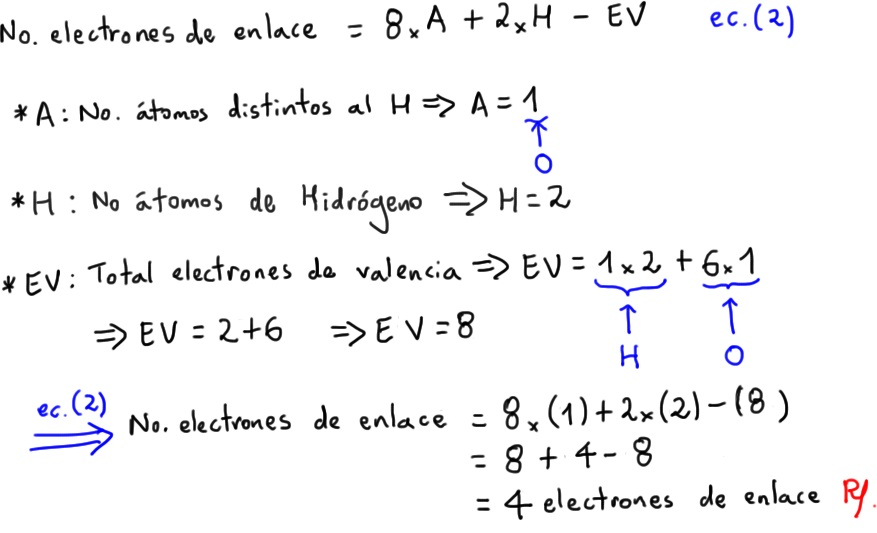 No. electrones de enlace = 8 x A + 2 x H - EV ec.(2)
* A: No. átomos distintos al H => A = 1
↑
O
* H: No átomos de Hidrógeno => H = 2
* EV: Total electrones de valencia => EV = 1 x 2 + 6 x 1
=> EV = 2+6 => EV = 8
↑ ↑
H O
ec.(2) => No. electrones de enlace = 8 x (1) + 2 x (2) - (8)
= 8 + 4 - 8
= 4 electrones de enlace R/.